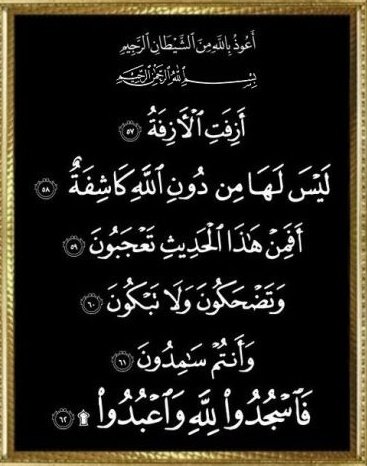 أَعُوذُ بِاللَّهِ مِنَ الشَّيْطَانِ الرَّجِيمِ
بِسْمِ اللَّهِ الرَّحْمَٰنِ الرَّحِيمِ
أَزِفَتِ ٱلْأَزِفَةُ ٥٧
لَيْسَ لَهَا مِن دُونِ ٱللَّهِ كَاشِفَةٌ ٥٨
أَفَمِنْ هَٰذَا ٱلْحَدِيثِ تَعْجَبُونَ ٥٩
وَتَضْحَكُونَ وَلَا تَبْكُونَ ٦٠
وَأَنتُمْ سَٰمِدُونَ ٦١
فَٱسْجُدُوا۟ لِلَّهِ وَٱعْبُدُوا۟ ۩ ٦٢